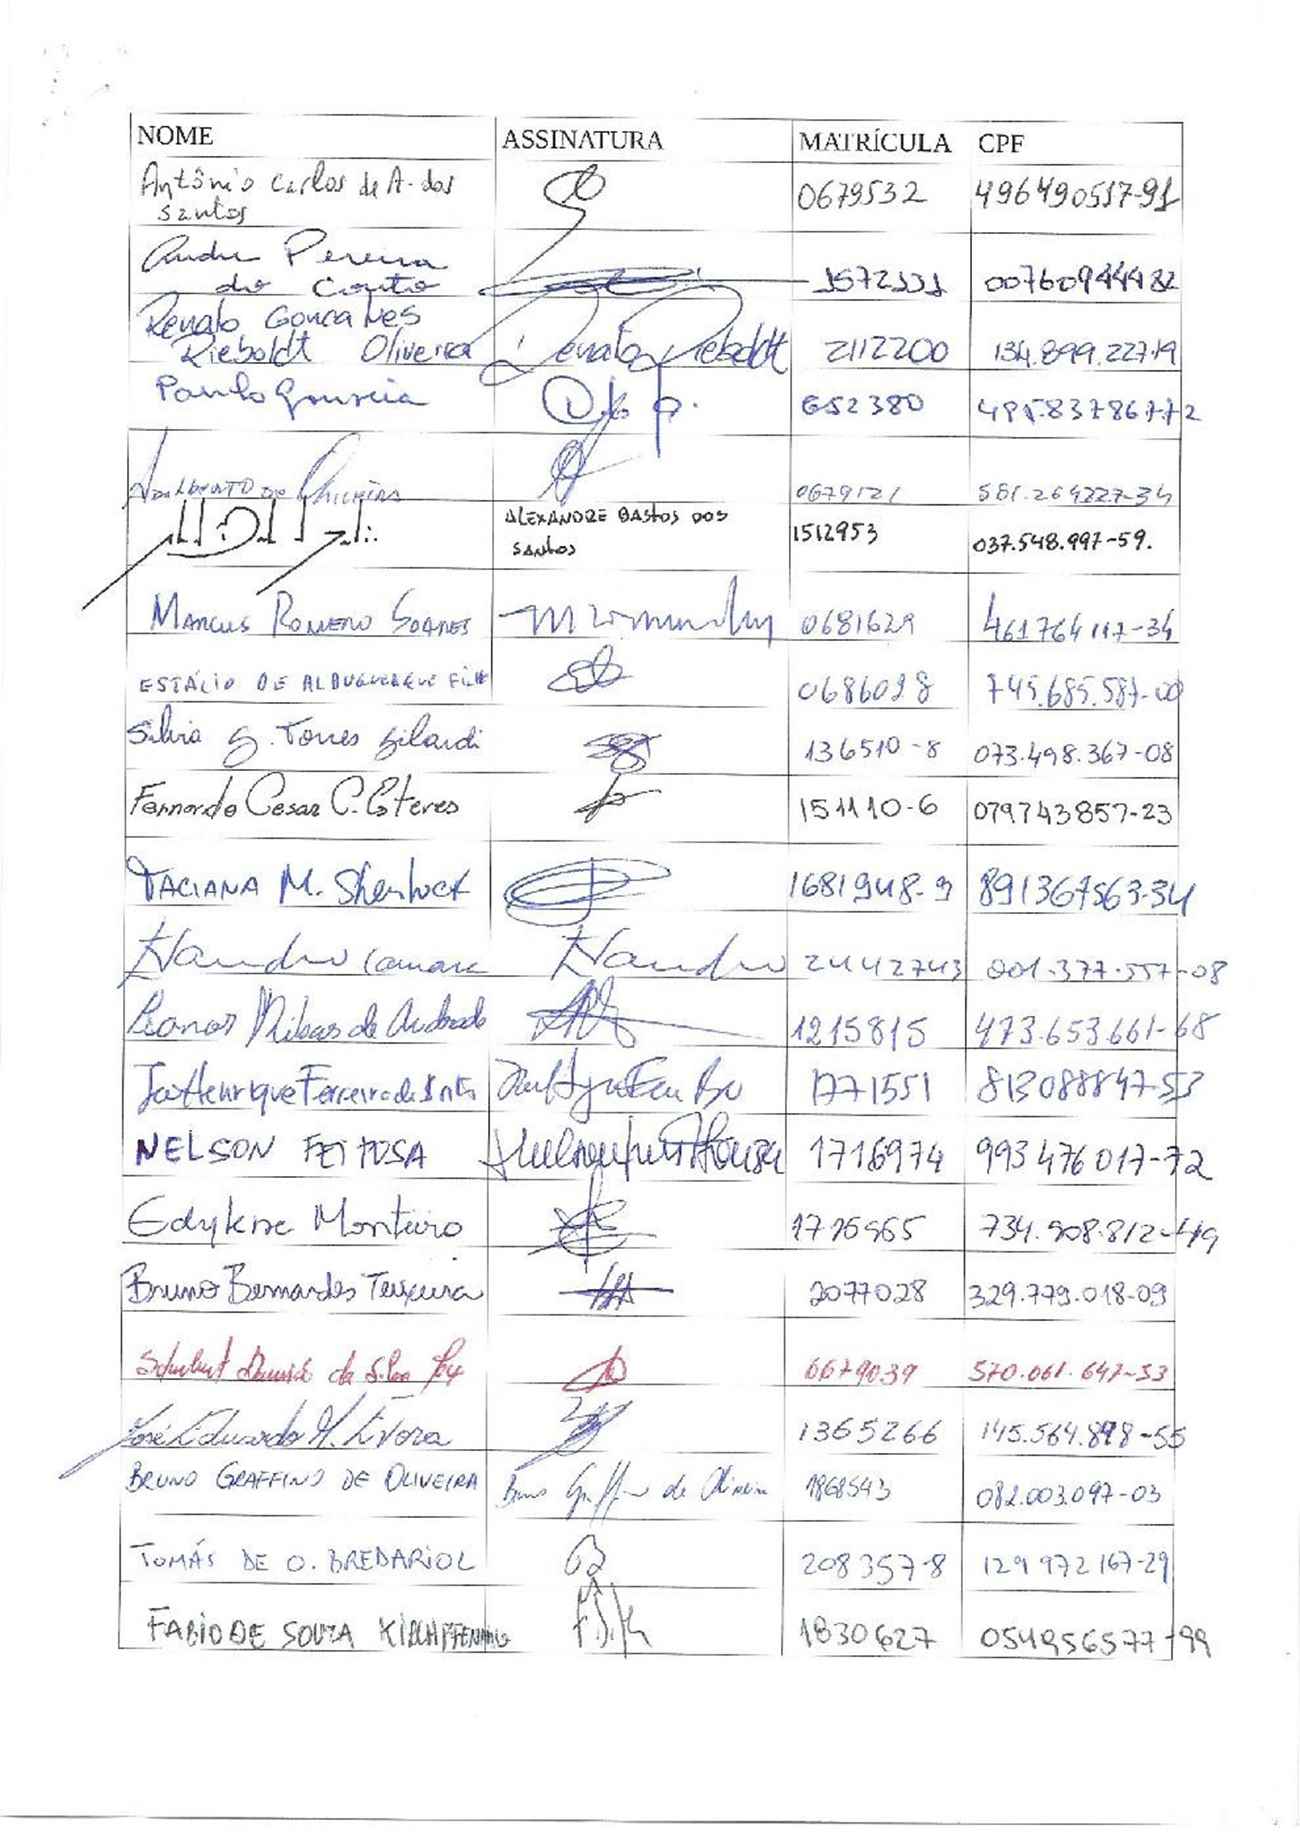 NOME ASSINATURA MATRÍCULA CPF
Antônio Carlos de A. dos
Santos 0679532 496490517-91
Andre Pereira
do Couto 1572131 00760944482
Renato Goncalves
Rieboldt Oliveira Renato Rieboldt 2112200 134.899.227-19
Paulo 652380
Adalberto de Oliveira 0679121 561.264227-34
ALEXANDRE BASTOS DOS
SANTOS 1512953 037.548.997-59.
MARCUS ROMERO SOARES 0681629 461764117-34
ESTÁCIO DE ALBUQUERQUE FILHO 0686098 745.685.587-00
Silvia G. Torres Gilardi 136510-8 073.498.367-08
Fernando Cesar C. Esteves 151110-6 079743857-23
TACIANA M. Sherlock 1681948-9 891367563-34
Camara 2442743 001.377.557-08
Ribas de Andrade 1215815 473.653.661-68
Henrique Ferreira 1771551 813088847-53
NELSON FEITOSA 1716974 993476017-72
Monteiro 734.908.812-49
Bruno Bernardes Teixeira 2077028 329.779.018-09
da Silva 0679039 570.061.647-53
José Eduardo 1365266 145.564.898-55
BRUNO GRAFFINO DE OLIVEIRA Bruno Graffino de Oliveira 1868543 082.003.097-03
TOMÁS DE O. BREDARIOL 208357-8 129972167-29
FABIO DE SOUZA 1830627 054956577-99